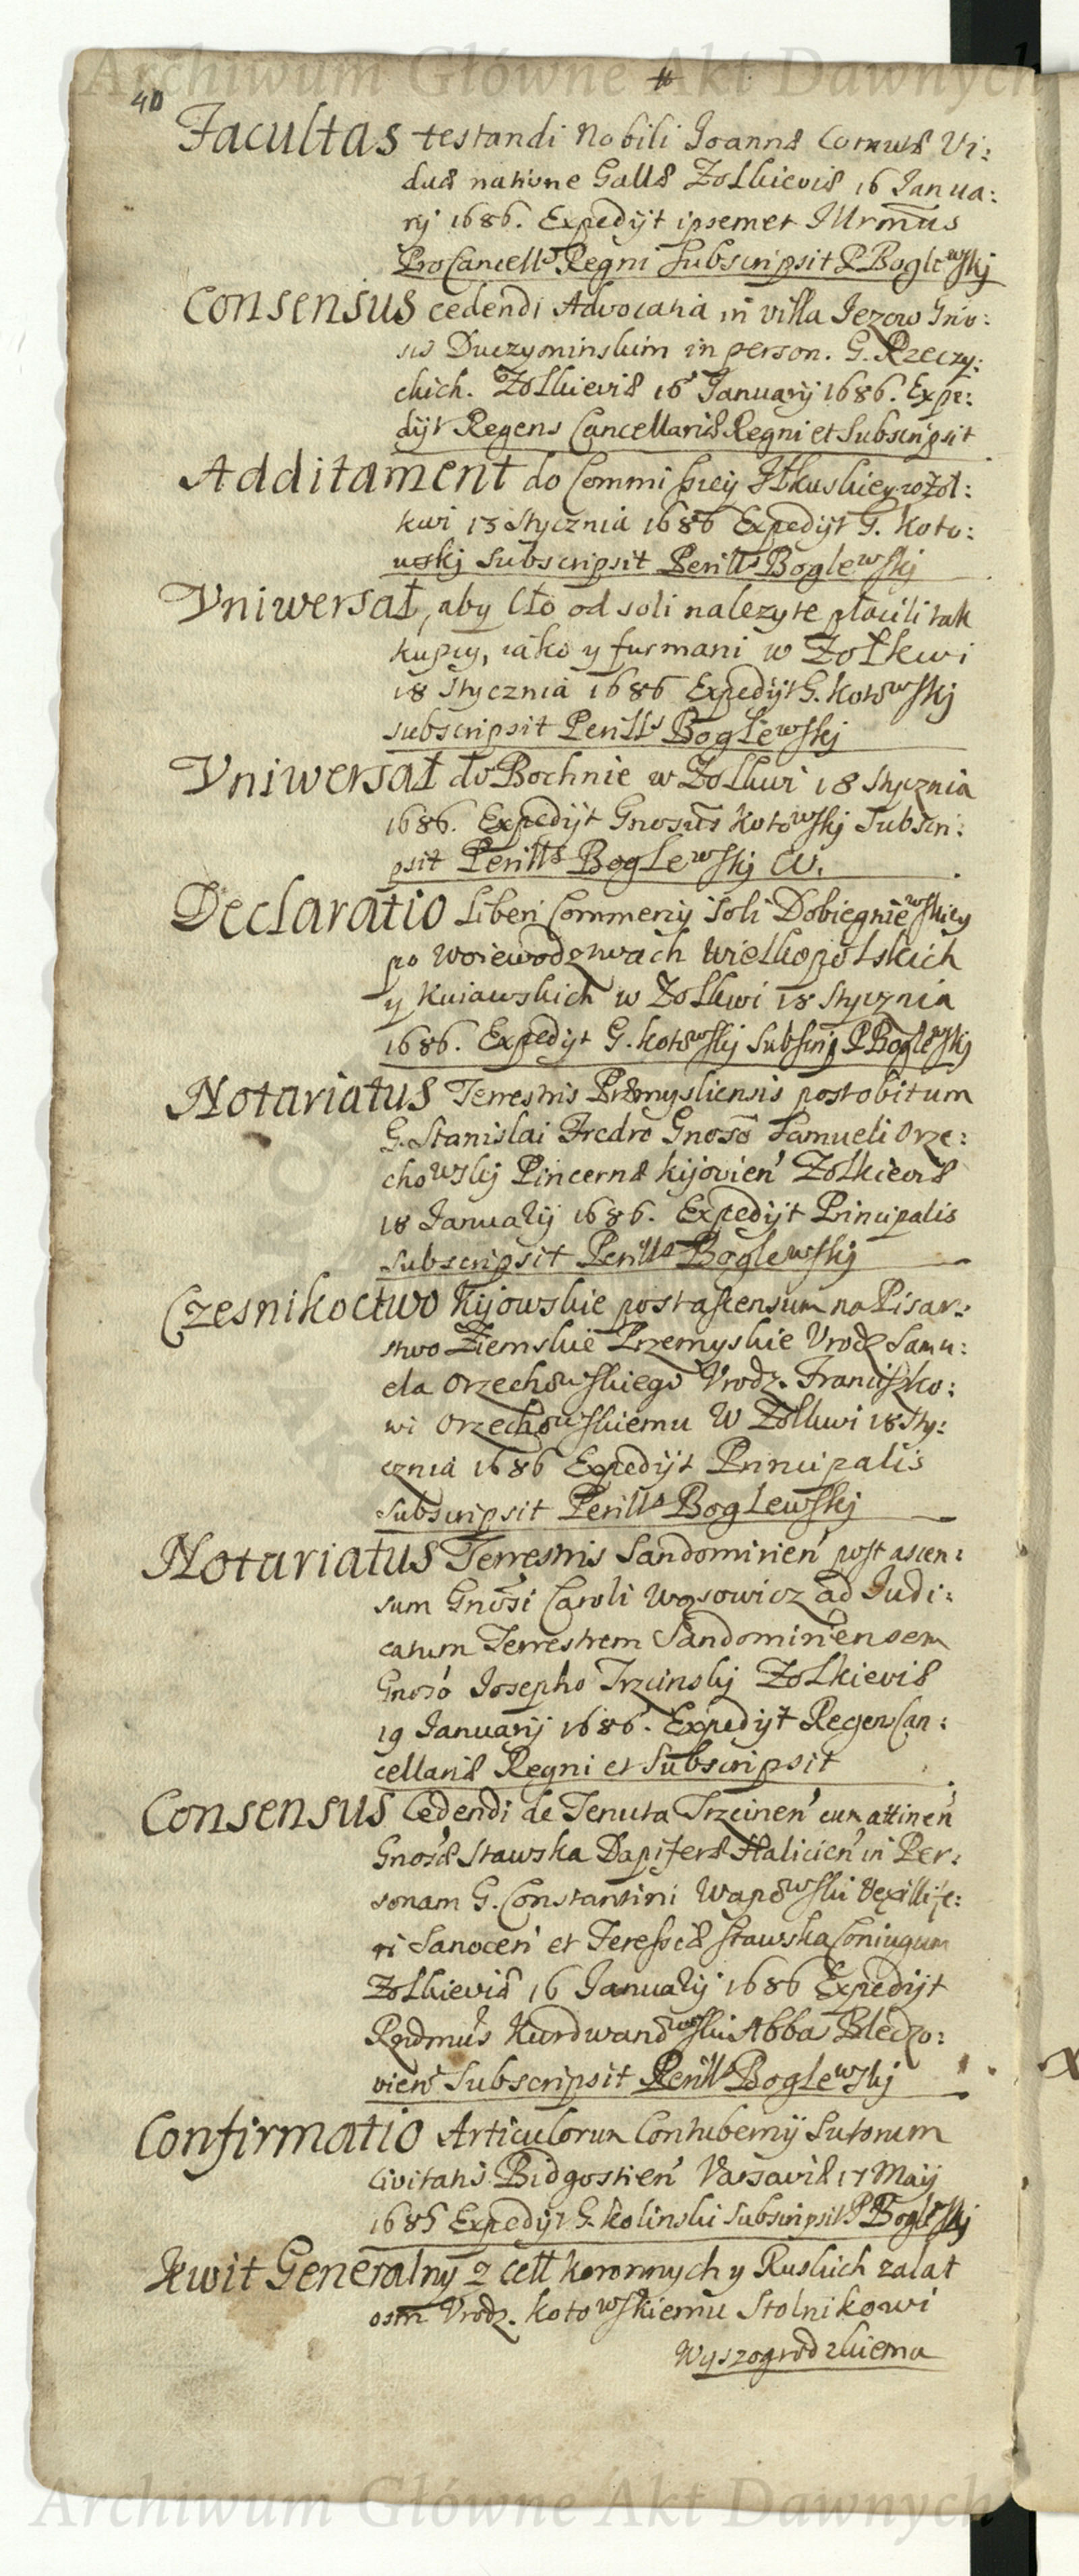 Archiwum Główne Akt Dawnych
40
Facultas testandi Nobili Joannæ Cornutæ Vi:
duæ natione Gallæ Zolkieviæ 16 Janua:
rij 1686. Expedijt ipsemet Illrmus
ProCancells Regni Subscripsit P Boglewskj
Consensus cedendi Advocatia in villa Jezow Gno:
sis Duczyminskim in person. G. Rzeczy:
ckich. Zolkieviæ 16 Januarij 1686. Expe:
dijt Regens Cancellariæ Regni et Subscripsit
Additament do Commissiey Ilkuskiey w Żoł:
kwi 18 Stycznia 1686 Expedijt G. Koto:
wskj Subscripsit Perills Boglewskj
Vniwersał, aby Cło od soli nalezyte płacili tak
kupcy, iako y furmani w Zołkwi
18 Stycznia 1686 Expedijt G. Kotowskj
subscripsit Perills Boglewskj
Vniwersał do Bochnie w Zolkwi 18 Stycznia
1686. Expedijt Gnosus Kotowskj Subscri:
psit Perills Boglewskj
Declaratio Liberi Commercij Soli Dobiegniewskiey
po Woiewodztwach Wielkopolskich
y Kuiawskich w Zolkwi 18 Stycznia
1686. Expedijt G. Kotowskj Subscrip P Boglewskj
Notariatus Terrestris Præmysliensis post obitum
G. Stanislai Fredro Gnoso Samueli Orze:
chowskj Pincernæ Kijovien Zolkieviæ
18 Januarij 1686. Expedijt Principalis
Subscripsit Perills Boglewskj
Czesnikoctwo Kijowskie post ascensum na Pisar:
stwo Ziemskie Przemyskie Vrodz Samu:
ela Orzechowskiego Vrodz. Franciszko:
wi Orzechowskiemu W Zolkwi 18 Sty:
cznia 1686 Expedijt Principalis
Subscripsit Perills Boglewskj
Notariatus Terrestris Sandomirien post ascen:
sum Gnosi Caroli Wąsowicz ad Judi:
catum Terrestrem Sandomiriensem
Gnoso Josepho Trzcinskj Zolkieviæ
19 Januarij 1686. Expedijt Regens Can:
cellariæ Regni et Subscripsit
Consensus Cedendi de Tenuta Trzcinen cum attinen
Gnosæ Stawska Dapiferæ Halicien in Per:
sonam G. Constantini Wapowski Vexillife:
ri Sanocen etTeressiæ Stawska Coniugum
Zolkieviæ 16 Januarij 1686 Expedijt
Rndmus Kurdwanowski Abba Bledzo:
vien Subscripsit Perills Boglewskj
Confirmatio Articulorum Contubernij Sutorum
Civitatis Bidgostien Varsaviæ 17 Maij
1685 Expedijt G. Kolinski Subscripsit P Boglewskj
Kwit Generalny z Cełł Koronnych y Ruskich za lat
osm Vrodz. Kotowskiemu Stolnikowi
Wyszogrodzkiemu
Archiwum Główne Akt Dawnych